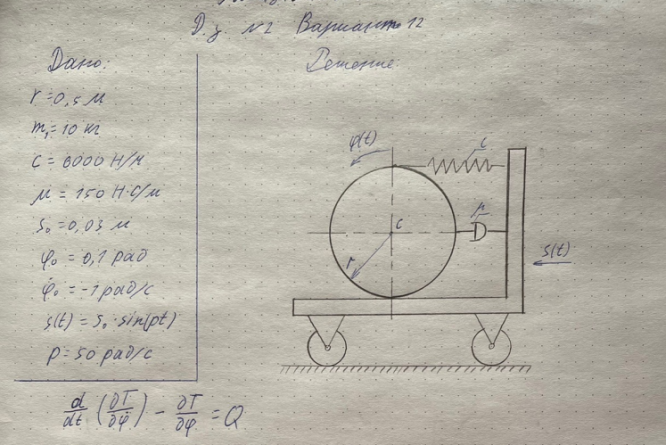 Д.з. №2 Вариант 12
Дано:
Решение:
r = 0,5 м
m₁ = 10 кг
c = 6000 Н/м
μ = 150 Н·с/м
s₀ = 0,03 м
φ₀ = 0,1 рад
φ̇₀ = -1 рад/с
s(t) = s₀ · sin(pt)
p = 50 рад/с
φ(t)
c
μ
C
r
s(t)
d/dt (∂T/∂φ̇) - ∂T/∂φ = Q